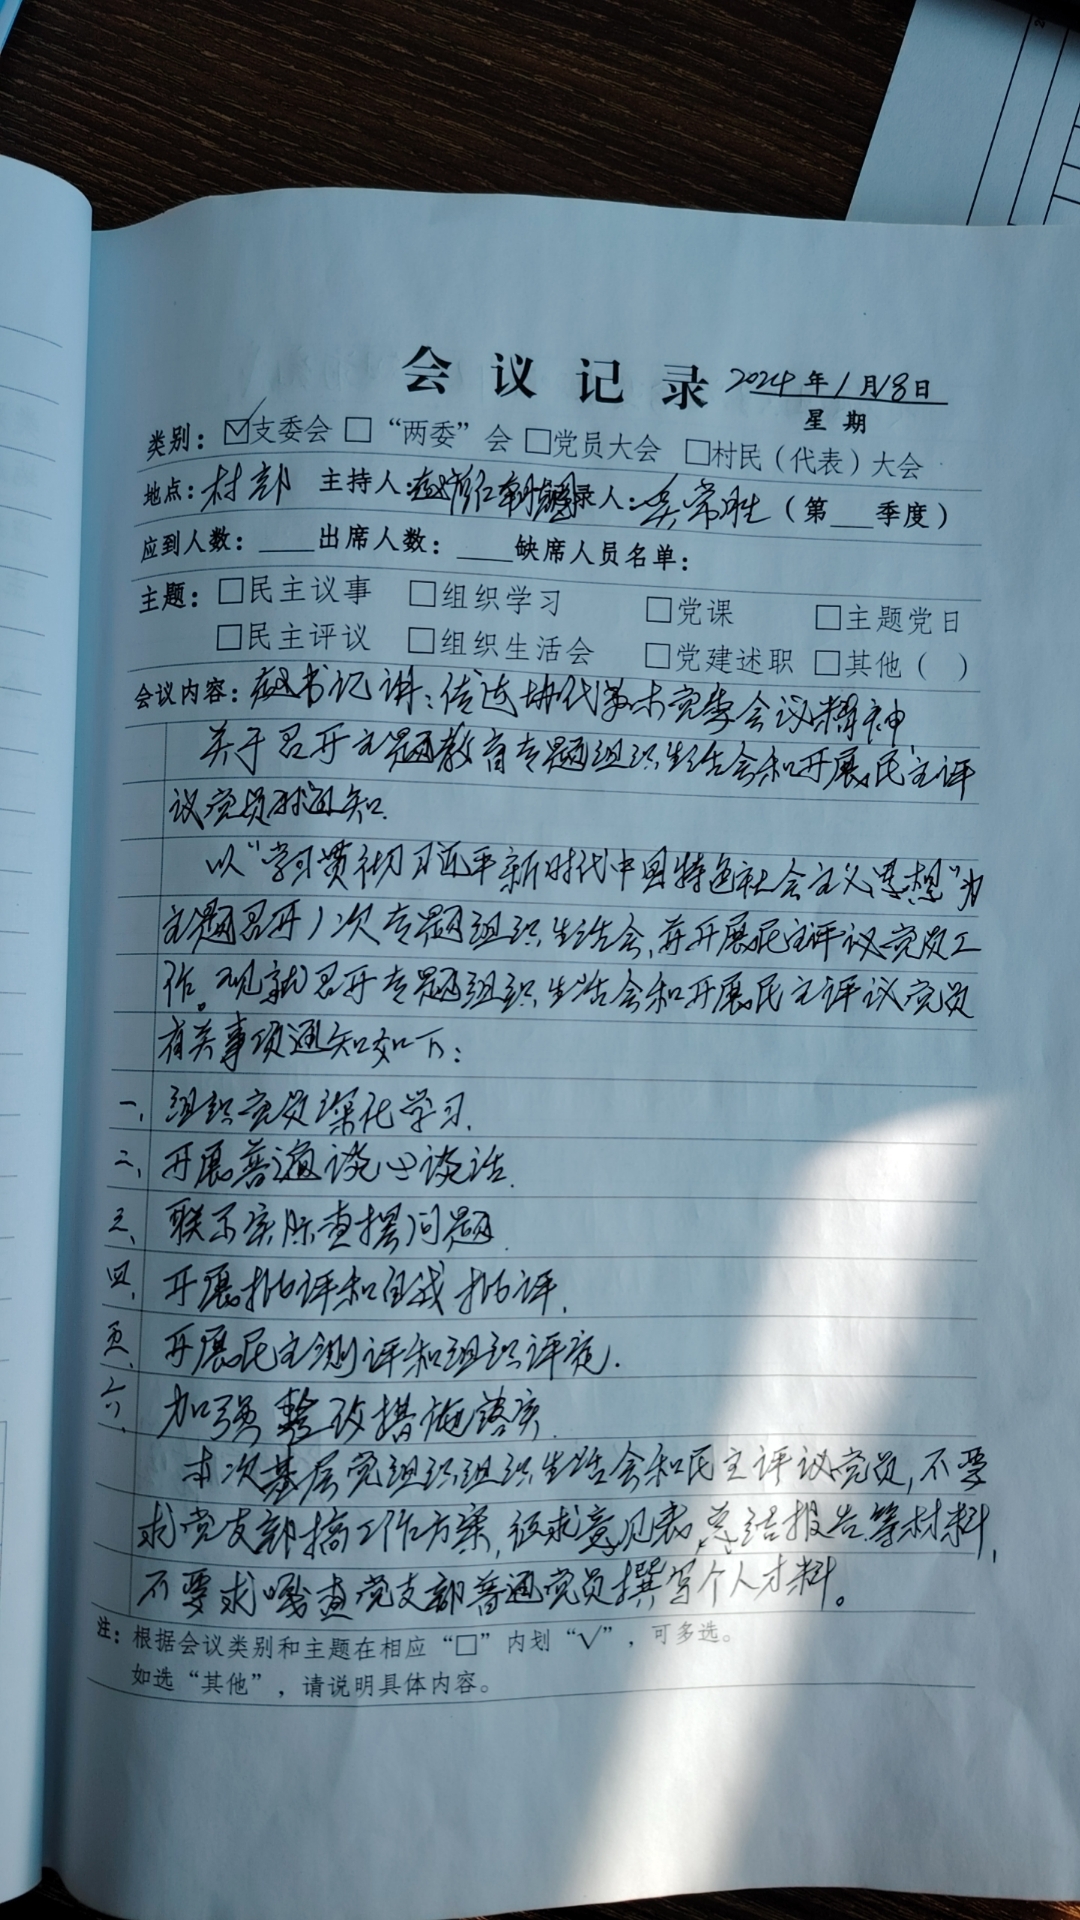 会议记录 2024年1月18日
星期
类别：☑支委会 □“两委”会 □党员大会 □村民（代表）大会
地点：村部 主持人： 录人：吴常胜（第___季度）
应到人数：____出席人数：____缺席人员名单：
主题：□民主议事 □组织学习 □党课 □主题党日
□民主评议 □组织生活会 □党建述职 □其他（ ）
会议内容：书记讲：传达 党委会议精神，
关于召开主题教育专题组织生活会和开展民主评
议党员的通知.
以“学习贯彻习近平新时代中国特色社会主义思想”为
主题召开1次专题组织生活会,并开展民主评议党员工
作。现就召开专题组织生活会和开展民主评议党员
有关事项通知如下：
一、组织党员深化学习.
二、开展普遍谈心谈话.
三、联系实际查摆问题.
四、开展批评和自我批评.
五、开展民主测评和组织评定.
六、加强整改措施落实.
本次基层党组织组织生活会和民主评议党员,不要
求党支部搞工作方案,征求意见表,总结报告等材料,
不要求 党支部普通党员撰写个人材料。
注：根据会议类别和主题在相应“□”内划“√”，可多选。
如选“其他”，请说明具体内容。